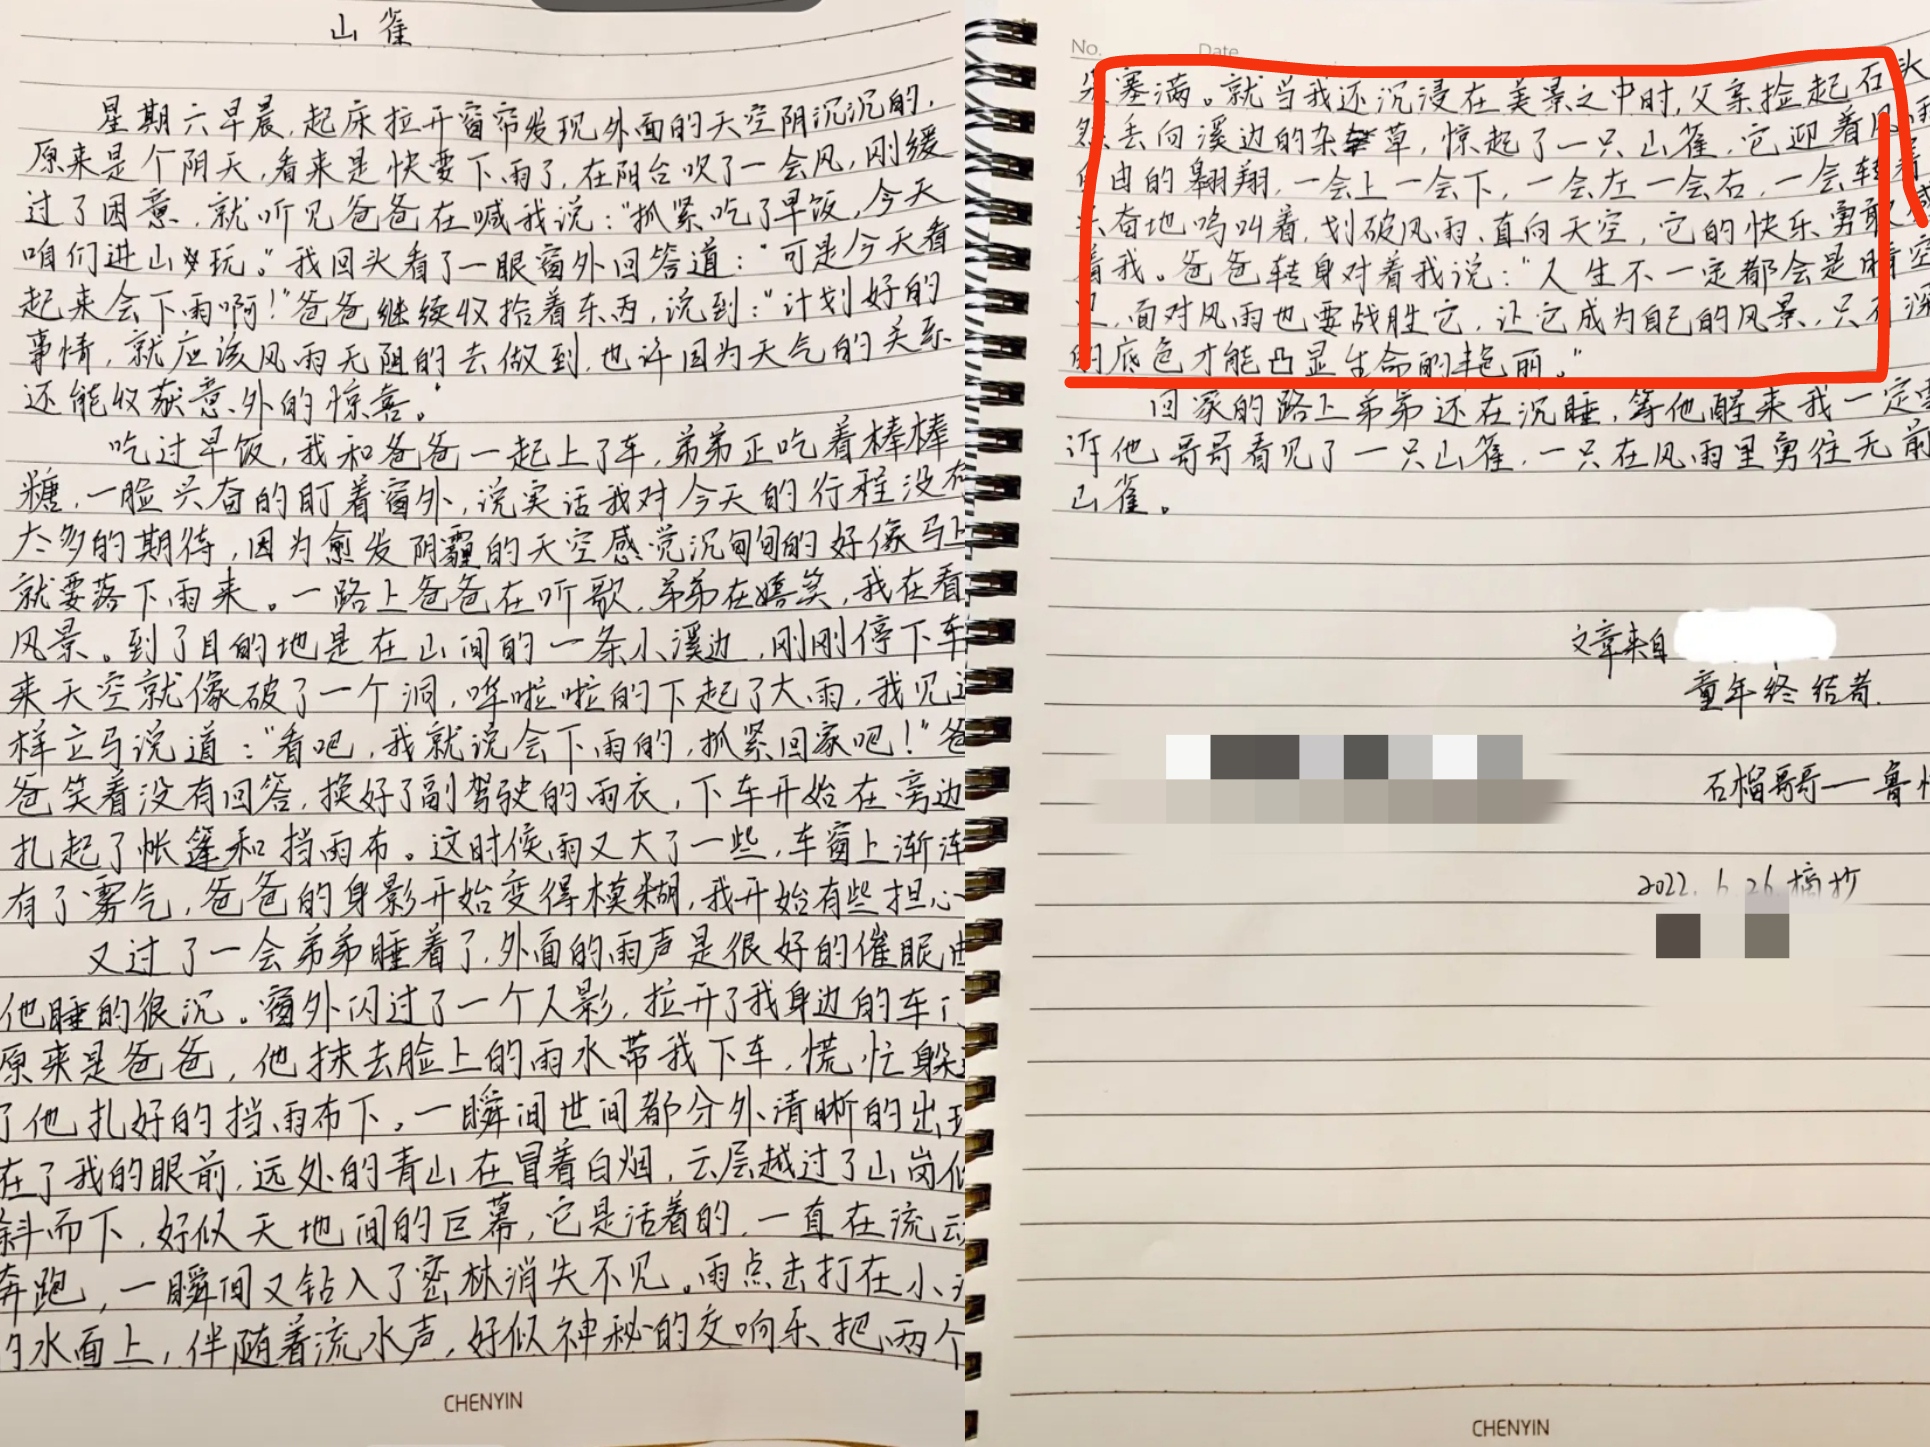 山雀
星期六早晨，起床拉开窗帘发现外面的天空阴沉沉的，
原来是个阴天，看来是快要下雨了，在阳台吹了一会风，刚缓
过了困意，就听见爸爸在喊我说：“抓紧吃了早饭，今天
咱们进山玩。”我回头看了一眼窗外回答道：“可是今天看
起来会下雨啊！”爸爸继续收拾着东西，说到：“计划好的
事情，就应该风雨无阻的去做到，也许因为天气的关系
还能收获意外的惊喜。”
吃过早饭，我和爸爸一起上了车，弟弟正吃着棒棒
糖，一脸兴奋的盯着窗外，说实话我对今天的行程没有
太多的期待，因为愈发阴霾的天空感觉沉甸甸的好像马上
就要落下雨来。一路上爸爸在听歌，弟弟在嬉笑，我在看
风景。到了目的地是在山间的一条小溪边，刚刚停下车
来天空就像破了一个洞，哗啦啦的下起了大雨，我见这
样立马说道：“看吧，我就说会下雨的，抓紧回家吧！”爸
爸笑着没有回答，换好了副驾驶的雨衣，下车开始在旁边
扎起了帐篷和挡雨布。这时候雨又大了一些，车窗上渐渐
有了雾气，爸爸的身影开始变得模糊，我开始有些担心
又过了一会弟弟睡着了，外面的雨声是很好的催眠曲
他睡的很沉。窗外闪过了一个人影，拉开了我身边的车门
原来是爸爸，他抹去脸上的雨水带我下车，慌忙躲
了他扎好的挡雨布下。一瞬间世间都分外清晰的出现
在了我的眼前，远处的青山在冒着白烟，云层越过了山岗倾
斜而下，好似天地间的巨幕，它是活着的，一直在流动
奔跑，一瞬间又钻入了密林消失不见。雨点击打在小
的水面上，伴随着流水声，好似神秘的交响乐把两个
CHENYIN
No. Date
朵塞满。就当我还沉浸在美景之中时，父亲捡起石头
然丢向溪边的杂草，惊起了一只山雀，它迎着风雨
自由的翱翔，一会上一会下，一会左一会右，一会转着
兴奋地鸣叫着，划破风雨，直向天空，它的快乐勇敢感
着我。爸爸转身对着我说：“人生不一定都会是晴空
里，面对风雨也要战胜它，让它成为自己的风景，只有深
的底色才能凸显生命的艳丽。”
回家的路上弟弟还在沉睡，等他醒来我一定要
诉他哥哥看见了一只山雀，一只在风雨里勇往无前
山雀。
文章来自
童年终结者.
石榴哥哥一鲁
2022.6.26摘抄
CHENYIN